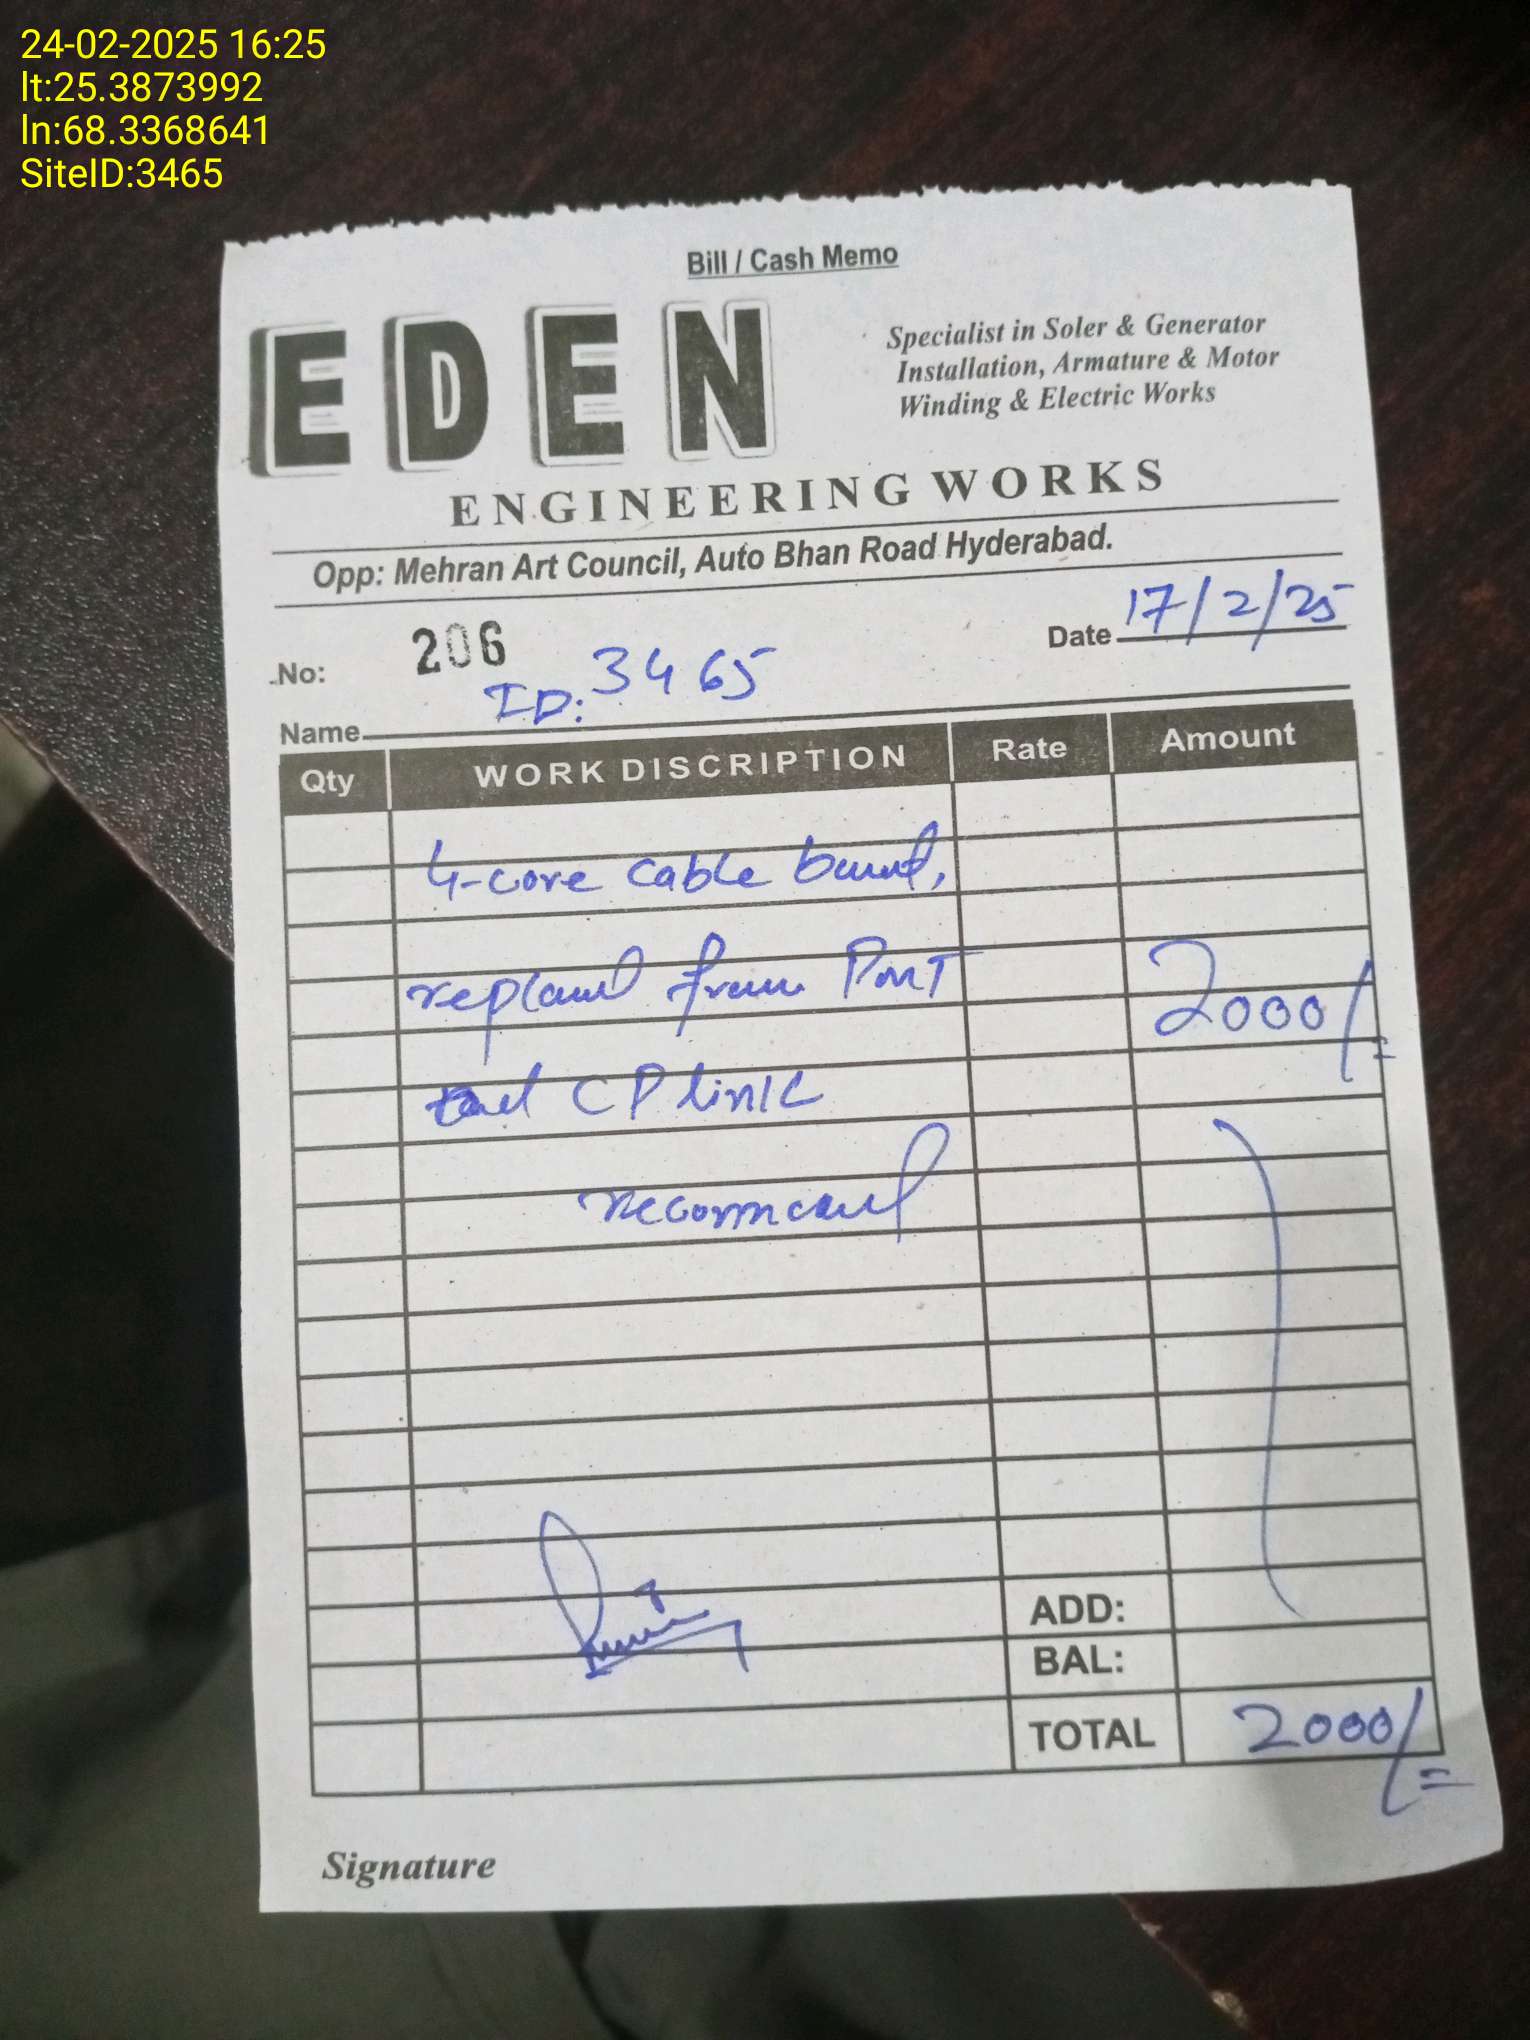 24-02-2025 16:25
lt:25.3873992
ln:68.3368641
SiteID:3465
Bill / Cash Memo
EDEN
Specialist in Soler & Generator
Installation, Armature & Motor
Winding & Electric Works
ENGINEERING WORKS
Opp: Mehran Art Council, Auto Bhan Road Hyderabad.
No: 206
Date 17/2/25
ID: 3465
Name
Qty WORK DISCRIPTION Rate Amount
4-core cable
from PMT
2000/=
CP link
ADD:
BAL:
TOTAL 2000/=
Signature